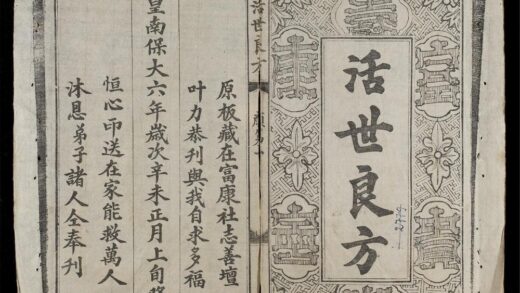 活世良方
活世良方
原板藏在富康社志善壇
叶力恭刊與我自求多福
皇南保大六年歲次辛未正月上旬
恒心印送在家能救萬人
沐恩弟子諸人仝奉刊